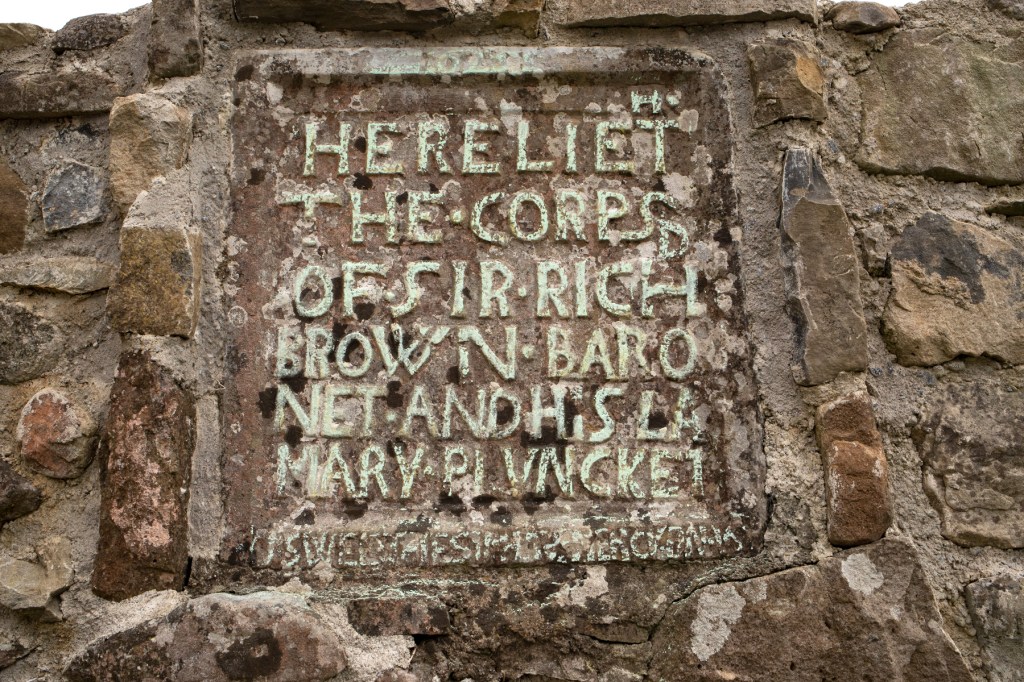 HERE LIETH
THE · CORPS
OF · SIR · RICHD
BROWN · BARO
NET · AND HIS LA
MARY · PLVNCKET